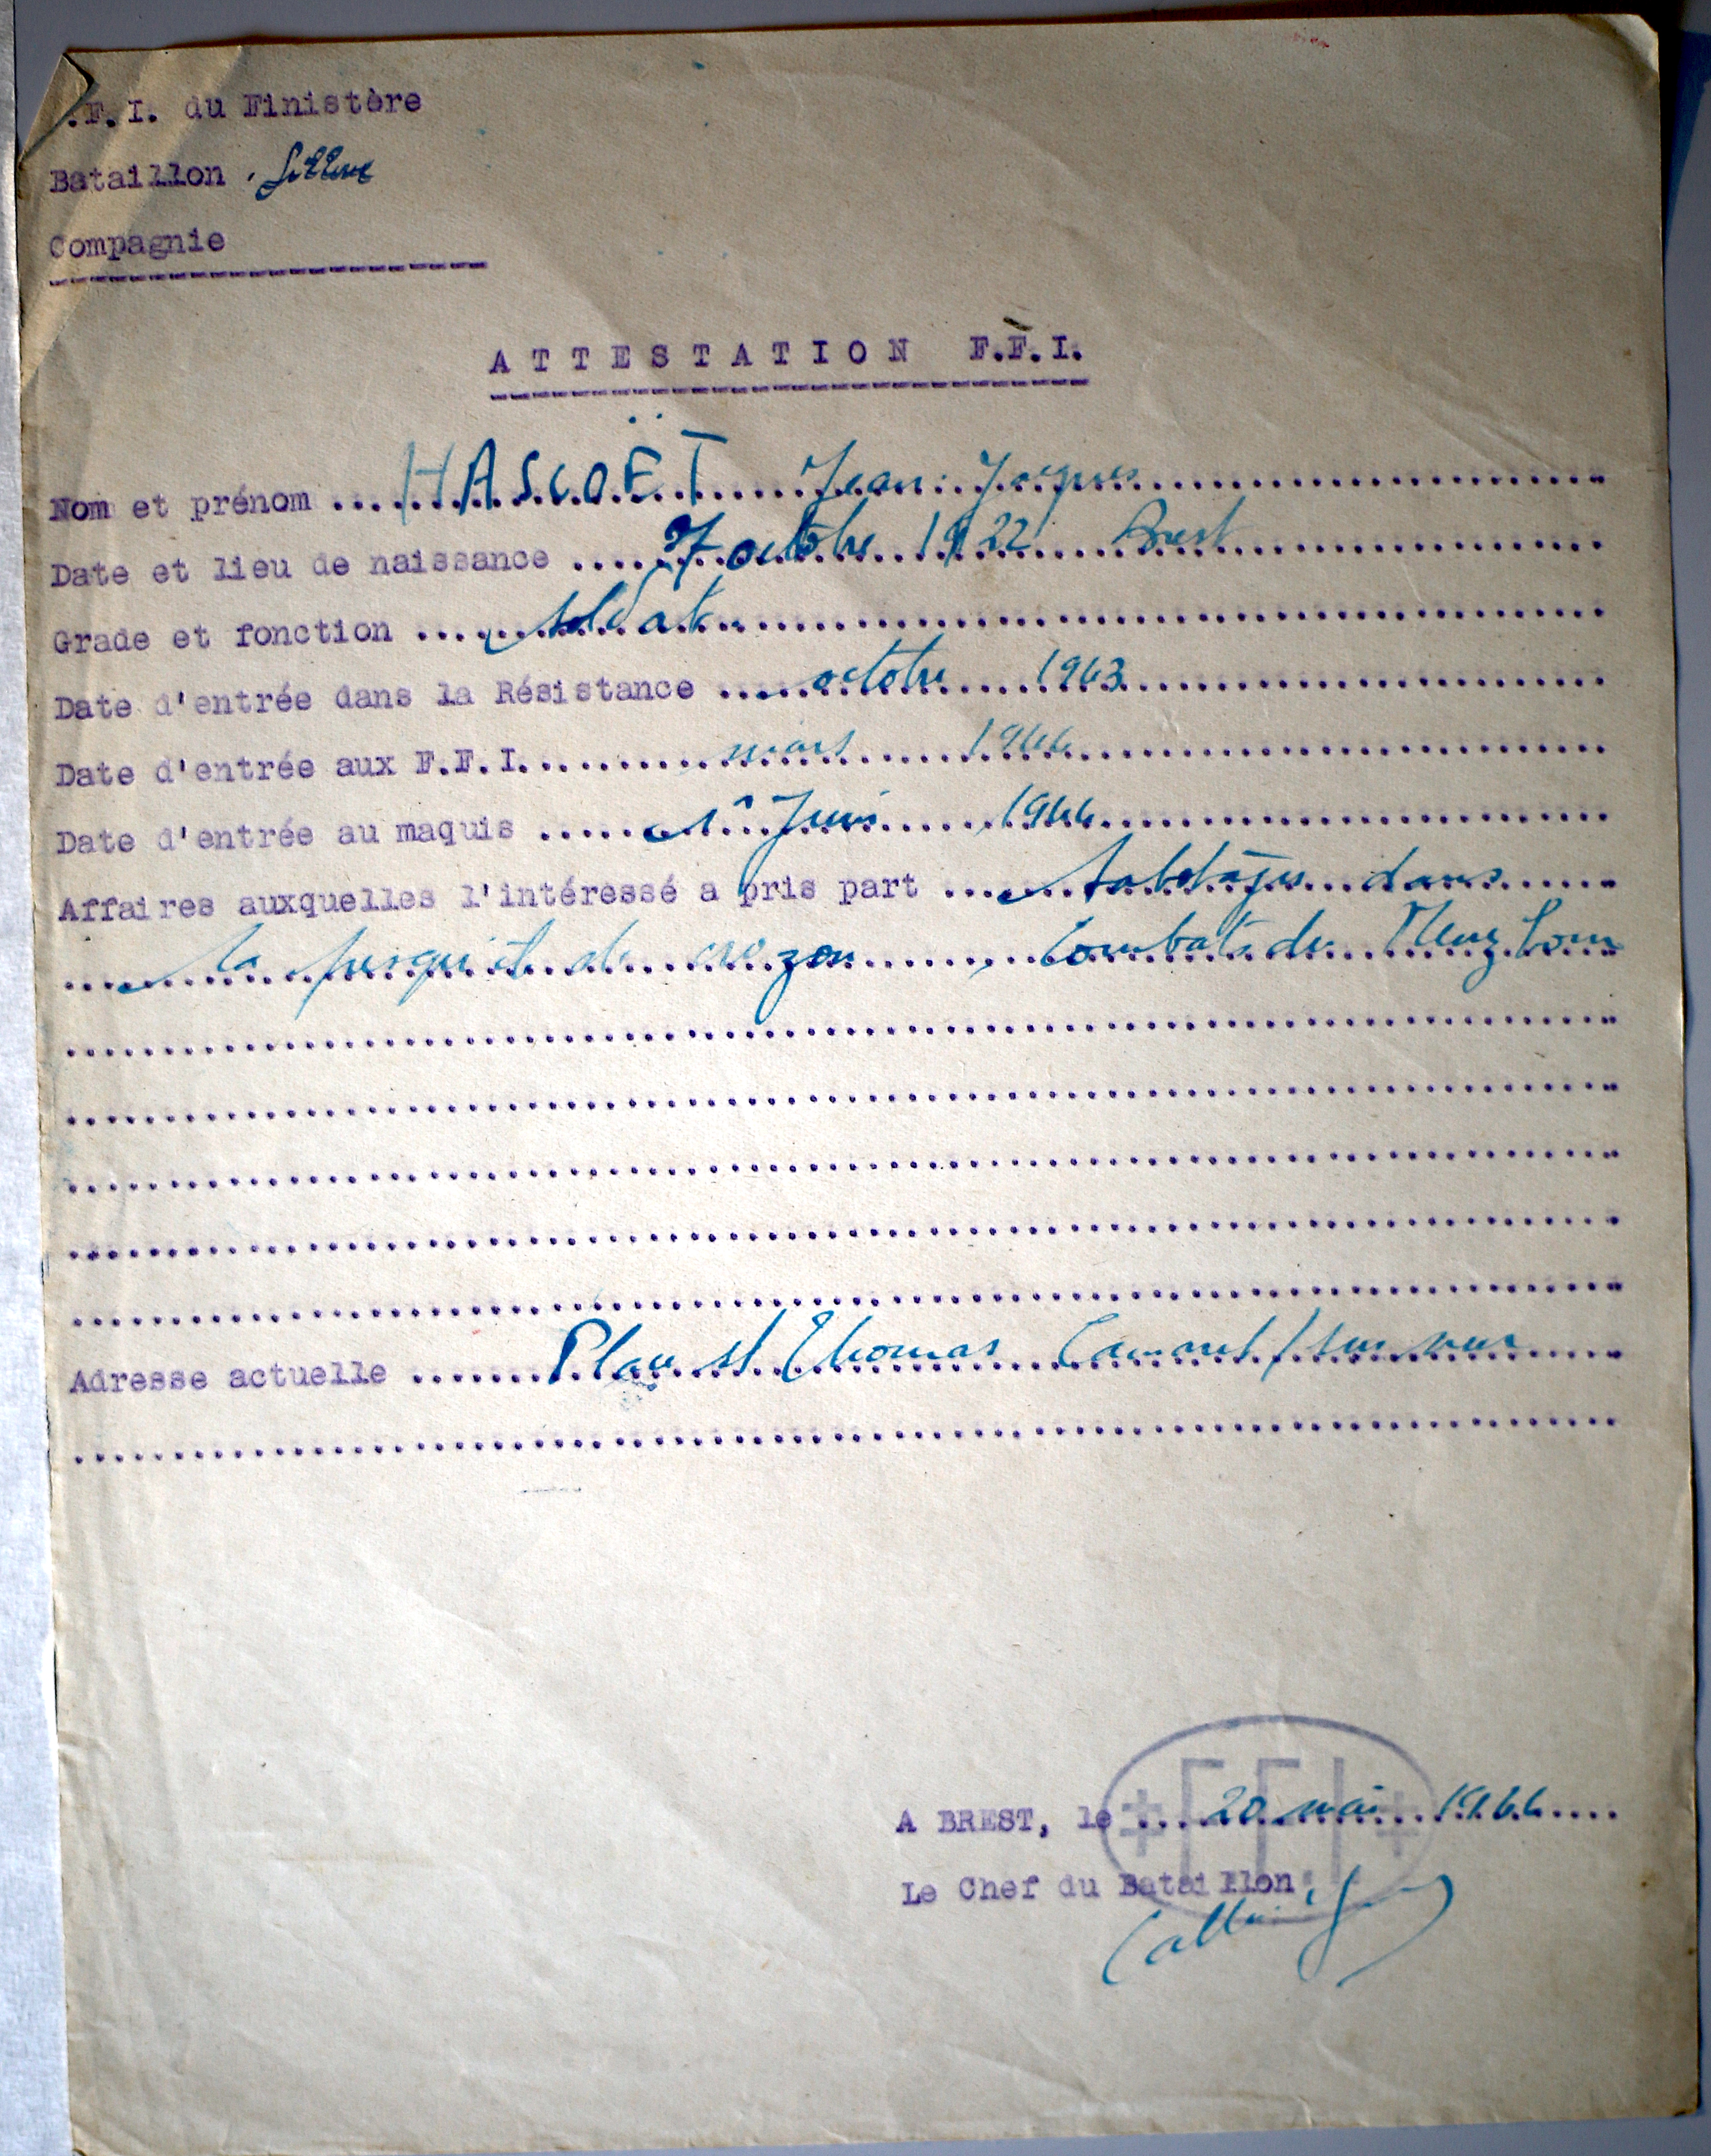 .F.I. du Finistère
Bataillon
Compagnie
ATTESTATION F.F.I.
Nom et prénom .... HASCOËT Jean Jacques
Date et lieu de naissance .... 7 octobre 1922 Brest
Grade et fonction .... soldat
Date d'entrée dans la Résistance .... octobre 1943
Date d'entrée aux F.F.I. .... mars 1944
Date d'entrée au maquis .... 1er Juin 1944
Affaires auxquelles l'intéressé a pris part .... Sabotages dans
la presqu'ile de crozon, Combats du Menez hom
Adresse actuelle .... Place st Thomas Camaret / sur mer
FFI
A BREST, le ... 20 mai 1944 ....
Le Chef du Bataillon,